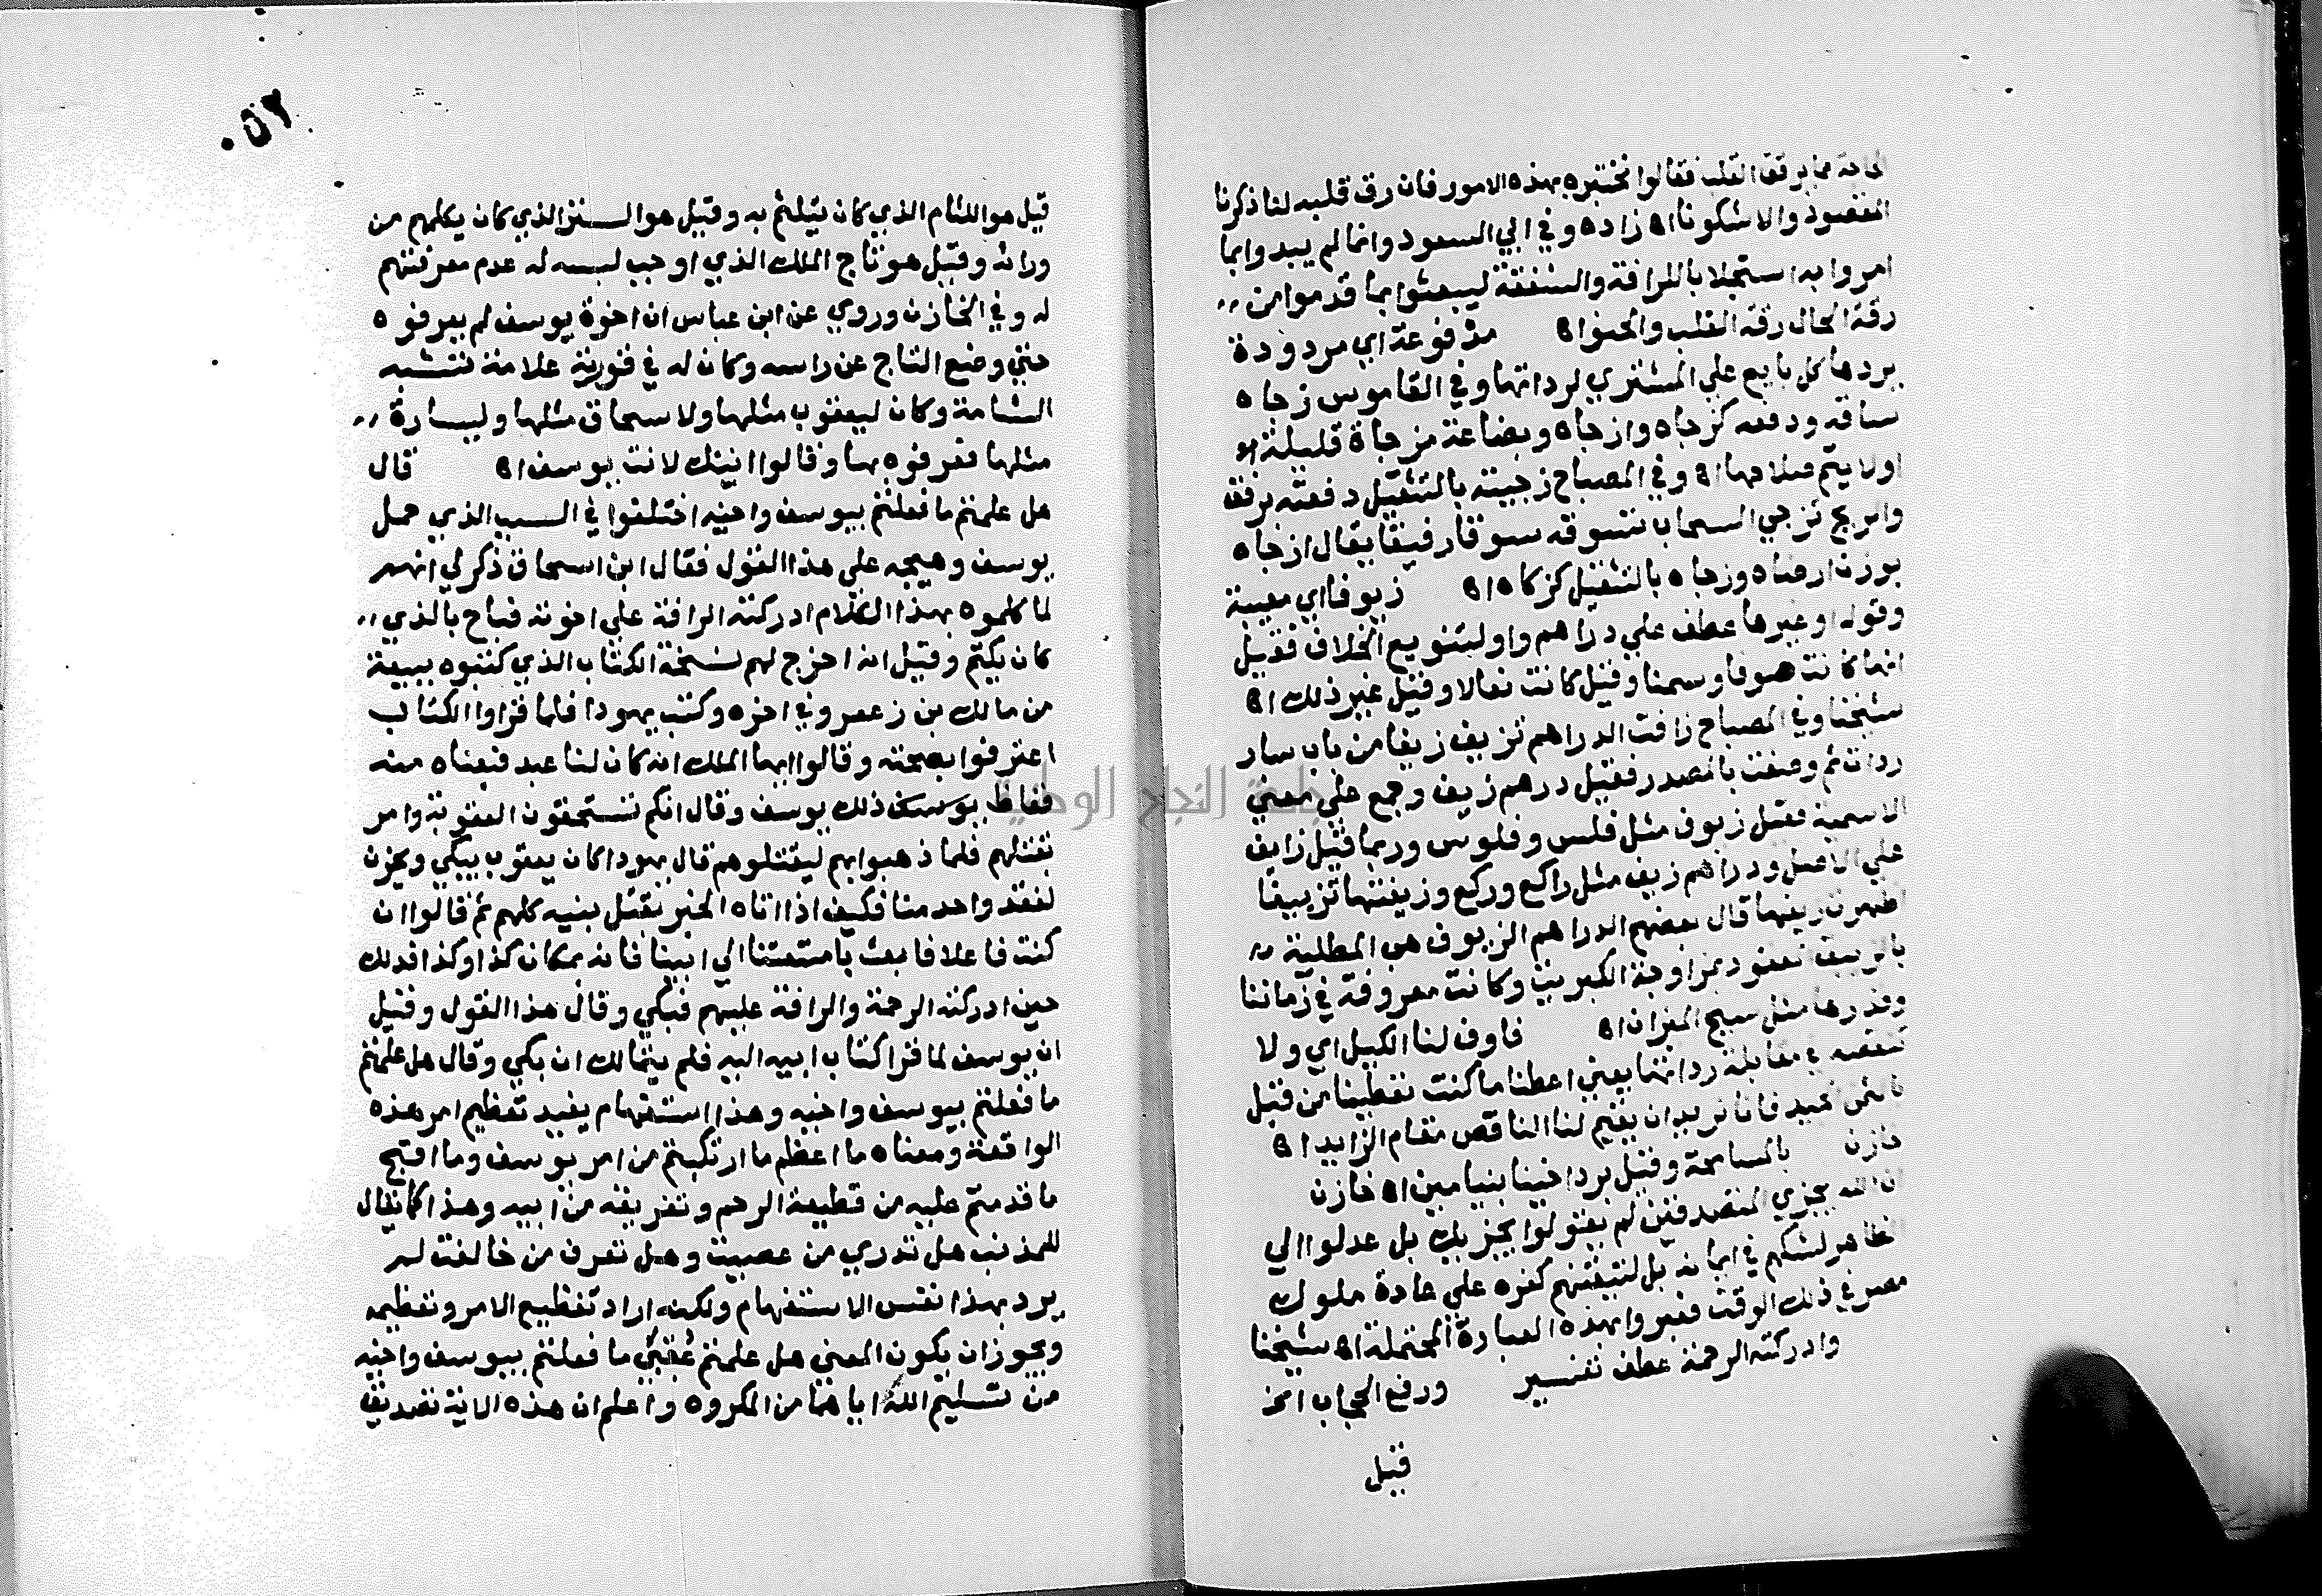 الحاجة مما يرقق القلب فقالوا نختبره بهذه الامور فان رق قلبه لنا ذكرنا
المقصود والا سكتنا اه زاده وفي ابي السعود وانما لم يبدوا بما
امروا به استجلابا للرافة والشفقة ليبعثوا بما قدموا من
رقة الحال رقة القلب والحنو اه مدفوعة اي مردودة
يردها كل بايع علي المشتري لرداتها وفي القاموس زجاه
ساقه ودفعه كزجاه وازجاه وبضاعة مزجاة قليلة او
اولا يتم صلاحها اه وفي المصباح زجيته بالتثقيل دفعته برفق
والريح تزجي السحاب تسوقه سوقا رفيقا يقال ازجاه
بوزن ارضاه وزجاه بالتثقيل كزكاه اه زيوفا اي معيبة
وقوله او غيرها عطف علي دراهم واو لتنويع الخلاف فقيل
انها كانت صوفا وسمنا وقيل كانت نعالا وقيل غير ذلك اه
شيخنا وفي المصباح زافت الدراهم تزيف زيفا من باب سار
ردات ثم وصفت بالمصدر فقيل درهم زيف وجمع علي معني
الاسمية فقيل زيوف مثل فلس وفلوس وربما قيل زايف
علي الاصل ودراهم زيف مثل راكع وركع وزيفتها تزييفا
اظهرت زيفها قال بعضهم الدراهم الزيوف هي المطلية
بالزيبق المعقود بمزاوجة الكبريت وكانت معروفة في زماننا
وقدرها مثل سبج الميزان اه فاوف لنا الكيل اي ولا
تنقصه في مقابلة رداتها يعني اعطنا ما كنت تعطينا من قبل
بالثمن الجيد فانا نريد ان يقيم لنا الناقص مقام الزايد اه
خازن بالمسامحة وقيل برد اخينا بنيامين اه خازن
ان الله يجزي المتصدقين لم يقولوا يجزيك بل عدلوا الي
الظاهر لشكهم في ايمانه بل لتيقنهم كفره علي عادة ملوك
مصر في ذلك الوقت فعبروا بهذه العبارة المحتملة اه شيخنا
وادركته الرحمة عطف تفسير ورفع الحجاب الخ
قيل
٢٥٠
قيل هو اللثام الذي كان يتلثم به وقيل هو الستر الذي كان يكلمهم من
ورائه وقيل هو تاج الملك الذي اوجب لبسه له عدم معرفتهم
له وفي الخازن وروي عن ابن عباس ان اخوة يوسف لم يعرفوه
حتي وضع التاج عن راسه وكان له في قورنه علامة تشبه
الشامة وكان ليعقوب مثلها ولاسحاق مثلها ولسارة
مثلها فعرفوه بها وقالوا ائنك لانت يوسف اه قال
هل علمتم ما فعلتم بيوسف واخيه اختلفوا في السبب الذي حمل
يوسف وهيجه علي هذا القول فقال ابن اسحاق ذكر لي انهم
لما كلموه بهذا الكلام ادركته الرافة علي اخوته فباح بالذي
كان يكتم وقيل انه اخرج لهم نسخة الكتاب الذي كتبوه ببيعه
من مالك بن زعمر وفي اخره وكتب يهودا فلما قراوا الكتاب
اعترفوا بصحته وقالوا ايها الملك انه كان لنا عبد فبعناه منه
فغاظ يوسف ذلك يوسف وقال انكم تستحقون العقوبة وامر
بقتلهم فلما ذهبوا بهم ليقتلوهم قال يهودا كان يعقوب يبكي ويحزن
لفقد واحد منا فكيف اذا اتاه الخبر بقتل بنيه كلهم ثم قالوا ان
كنت فاعلا فابعث بامتعتنا الي ابينا فانه بمكان كذا وكذا فدلك
حين ادركته الرحمة والرافة عليهم فبكي وقال هذا القول وقيل
ان يوسف لما قرا كتاب ابيه اليه فلم يتمالك ان بكي وقال هل علمتم
ما فعلتم بيوسف واخيه وهذا استفهام يفيد تعظيم امر هذه
الواقعة ومعناه ما اعظم ما ارتكبتم من امر يوسف وما اقبح
ما قدمتم عليه من قطيعة الرحم وتفريقه من ابيه وهذا كما يقال
للمذنب هل تدري من عصيت وهل تعرف من خالفت لم
يرد بهذا نفس الاستفهام ولكنه اراد تفظيع الامر وتعظيمه
ويجوز ان يكون المعني هل علمتم عقبي ما فعلتم بيوسف واخيه
من تسليم الله اياهما من المكروه واعلم ان هذه الاية تصديق
جامعة النجاح الوطنية